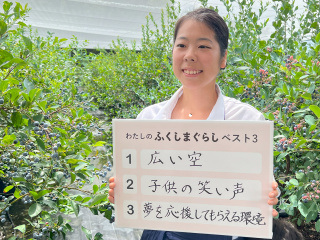 わたしの ふくしまぐらし ベスト3
1 広い空
2 子供の笑い声
3 夢を応援してもらえる環境